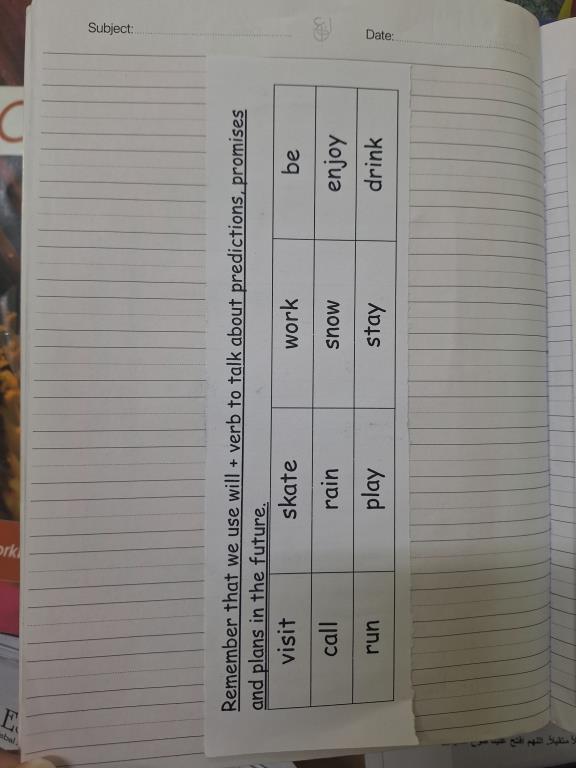 Subject:
Date:
Remember that we use will + verb to talk about predictions, promises
and plans in the future.
visit skate work be
call rain snow enjoy
run play stay drink